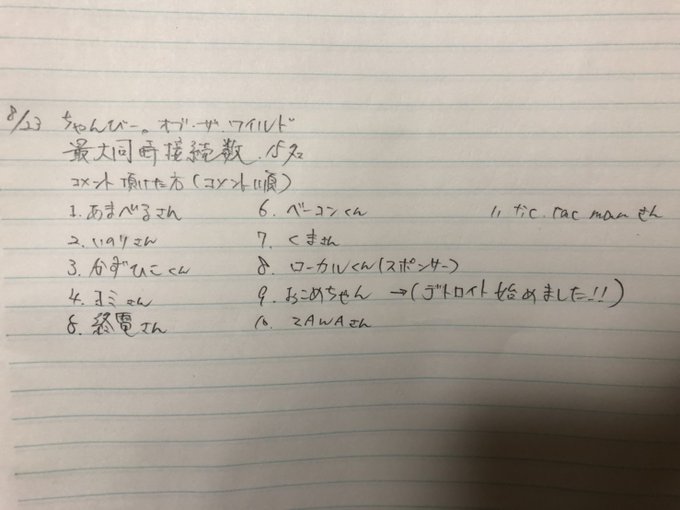 8/23 ちゃんびー。オブ・ザ・ワイルド
最大同時接続数.15名
コメント頂けた方(コメント順)
1. あまべるさん
2. いのりさん
3. かずひこくん
4. ヨミさん
5. 終電さん
6. ベーコンくん
7. くまさん
8. ローカルくん(スポンサー)
9. おこめちゃん →(デトロイト始めました!!)
10. ZAWAさん
11. tic. tac mamさん